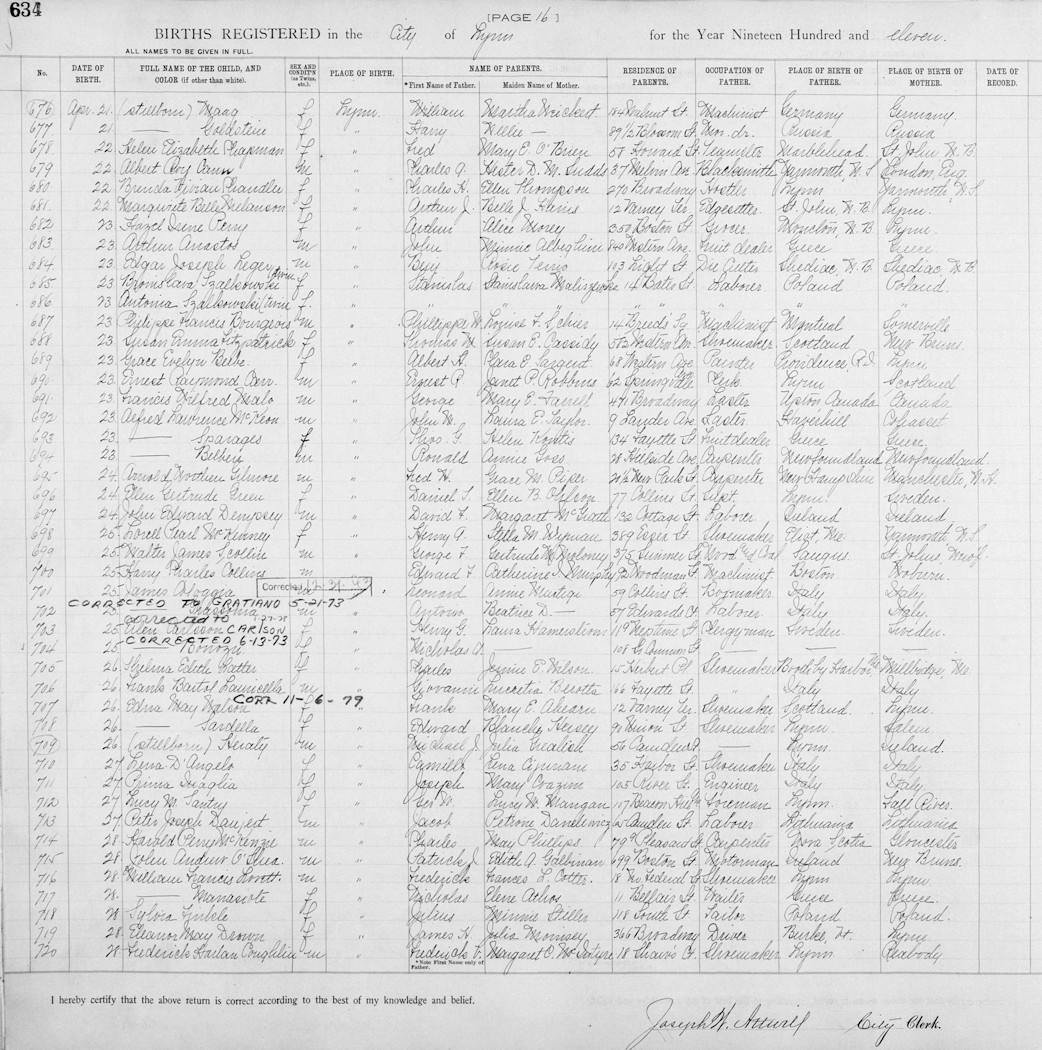 634
[PAGE 16]
BIRTHS REGISTERED in the City of Lynn for the Year Nineteen Hundred and eleven.
ALL NAMES TO BE GIVEN IN FULL.
No. DATE OF BIRTH. FULL NAME OF THE CHILD, AND COLOR (if other than white). SEX AND CONDIT'N (as Twins, etc.). PLACE OF BIRTH. NAME OF PARENTS. RESIDENCE OF PARENTS. OCCUPATION OF FATHER. PLACE OF BIRTH OF FATHER. PLACE OF BIRTH OF MOTHER. DATE OF RECORD.
*First Name of Father. Maiden Name of Mother.
676 Apr. 21. (stillborn) Maag f Lynn. William Martha Machinist Germany Germany.
677 21 — Goldstein f " Harry Nellie — 89 1/2 Blossom St. Russia Russia
678 22 Helen Elizabeth Chapman f " Fred Mary E. O'Brien 57 Howard St. Teamster Marblehead. St. John N.B.
679 22 Albert Roy Cann m " Charles A. Hester D. M. 37 Blacksmith Yarmouth, N.S. London, Eng.
680 22 Brenda Vivian Chandler f " Charles H. Ellen Thompson 270 Broadway Hostler Lynn Yarmouth, N.S.
681 22 Marguerite Belle Melanson f " Arthur J. Belle J. 12 Varney Ter. Edgesetter. St. John, N.B. Lynn.
682 23 Hazel Irene Perry f " Arthur Alice Morey 350 Boston St. Grocer Moncton, N.B. Lynn.
683 23 Arthur Anastos m " John Minnie 840 Western Ave. Fruit dealer Greece Greece.
684 23. Edgar Joseph Leger m " Benj. Rosie 103 Light St. Die Cutter Shediac, N.B. Shediac, N.B.
685 23 Bronislava Szalkowski (twin f " Stanislas Stanislawa 14 Bates St. Laborer Poland Poland.
686 23 Antonia Szalkowski (twin f " " " " " " "
687 23 Philippe Francis Bourgeois m " Phillippe W. Louise F. 14 Breeds Sq. Machinist Montreal Somerville
688 23 Susan Emma Fitzpatrick f " Thomas Susan E. Cassidy 583 Western Av. Shoemaker Scotland New Bruns.
689 23 Grace Evelyn Beebe f " Albert A. Clara E. Sargent. 68 Western Ave. Painter Providence, R.I. Lynn.
690 23. Ernest Raymond m " Ernest R. Janet P. Robbins 62 Springvale Ave Clerk Lynn Scotland
691 23. Francis Wilfred Malo m " George Mary E. Farrell 471 Broadway Laster Canada Canada
692 23. Alfred Lawrence McKeon m " John W. Laura E. Taylor. 9 Lander Ave. Laster Haverhill Cohasset
693 23. — Sparages f " Theo. G. Helen 134 Fayette St. Fruit dealer Greece Greece.
694 23. — Belbin m " Ronald Annie Goss 28 Adelaide Ave. Carpenter Newfoundland Newfoundland.
695 24. Arnold Worthen Gilmore m " Fred H. Grace M. Piper New Park St. Carpenter New Hampshire Manchester, N.H.
696 24. Ellen Gertrude Green f " Daniel S. Ellen B. Olofson 77 Collins St. Supt. Lynn. Sweden.
697 24. John Edward Dempsey m " David F. Margaret McGrath 132 Cottage St. Laborer Ireland Ireland.
698 25 Lovell Pearl McKenney f " Henry A. Stella M. Wyman 389 Essex St. Shoemaker Eliot, Me. Yarmouth N.S.
699 25 Walter James Scollin m " George F. Gertrude M. Moloney 375 Summer St. Wood and Coal Saugus. St. Johns,
700 25 Harry Charles Collins m " Edward F. Catherine J. Murphy 92 Woodman St. Machinist. Boston Woburn.
701 25 James Bologna Corrected 12-21-43 " Leonard Annie 59 Collins St. Boxmaker Italy Italy.
CORRECTED TO GRATIANO 5-21-73
702 m " Antonio Beatrice D. — 57 Edwards Ct. Laborer Italy Italy.
Corrected to CARLSON
703 25 Carlsson f " Henry G. Laura Hamerstrom 119 Neptune St. Clergyman Sweden Sweden.
CORRECTED 6-13-73
704 25 f " Nicholas A. — 108 Common St. — — —
705 26. Thelma Edith Patter f " Charles Jennie E. Wilson. 15 Herbert Pl. Shoemaker Boothbay Harbor Me. Millbridge, Me.
706 26. Frank Bartol Lauricella m " Giovannie 66 Fayette St. " Italy Italy
CORR 11-06-79
707 26. Edna May Watson f " Frank Mary E. Ahearn 12 Varney Ter. Shoemaker Scotland. Lynn.
708 26. — Sardella f " Edward Blanche Hersey 91 Union St. Shoemaker Lynn. Salem.
709 26 (stillborn) Heraty m " Michael J. Julia Grealish 56 Camden St. — Lynn. Ireland.
710 27 Lena D'Angelo f " Camillo Lena Cipriani 35 Harbor St. Shoemaker Italy Italy
711 27 Prima f " Joseph Mary 103 River St. Engineer Italy Italy.
712 27 Lucy M. Santry f " Geo. W. Lucy W. Mangan 117 Beacon Hill Foreman Lynn. Fall River.
713 27 Peter Joseph m " Jacob Petrone Camden St. Laborer Lithuania Lithuania
714 28 Harold Perry McKenzie m " Charles Mary Phillips. 79 Pleasant St. Carpenter Nova Scotia Gloucester
715 28. John Andrew O'Shea. m " Patrick J. Edith A. 699 Boston St. Motorman Ireland New Bruns.
716 28 William Francis Lovett m " Frederick Frances L. Cotter. 18 No. Federal St. Shoemaker Lynn Lynn.
717 28. — f " Nicholas Elene 11 Bellair St. Waiter Greece Greece.
718 28 Sylvia f " Julius Minnie 118 South St. Tailor Poland Poland.
719 28. Eleanor May Brown f " James H. Julia 366 Broadway Driver Burke, Vt. Lynn
720 28 Frederick Harlan Coughlin m " Frederick V. Margaret C. McIntyre 18 Shaws Ct. Shoemaker Lynn Peabody
*Note First Name only of Father.
I hereby certify that the above return is correct according to the best of my knowledge and belief.
Joseph W. Attwill City Clerk.